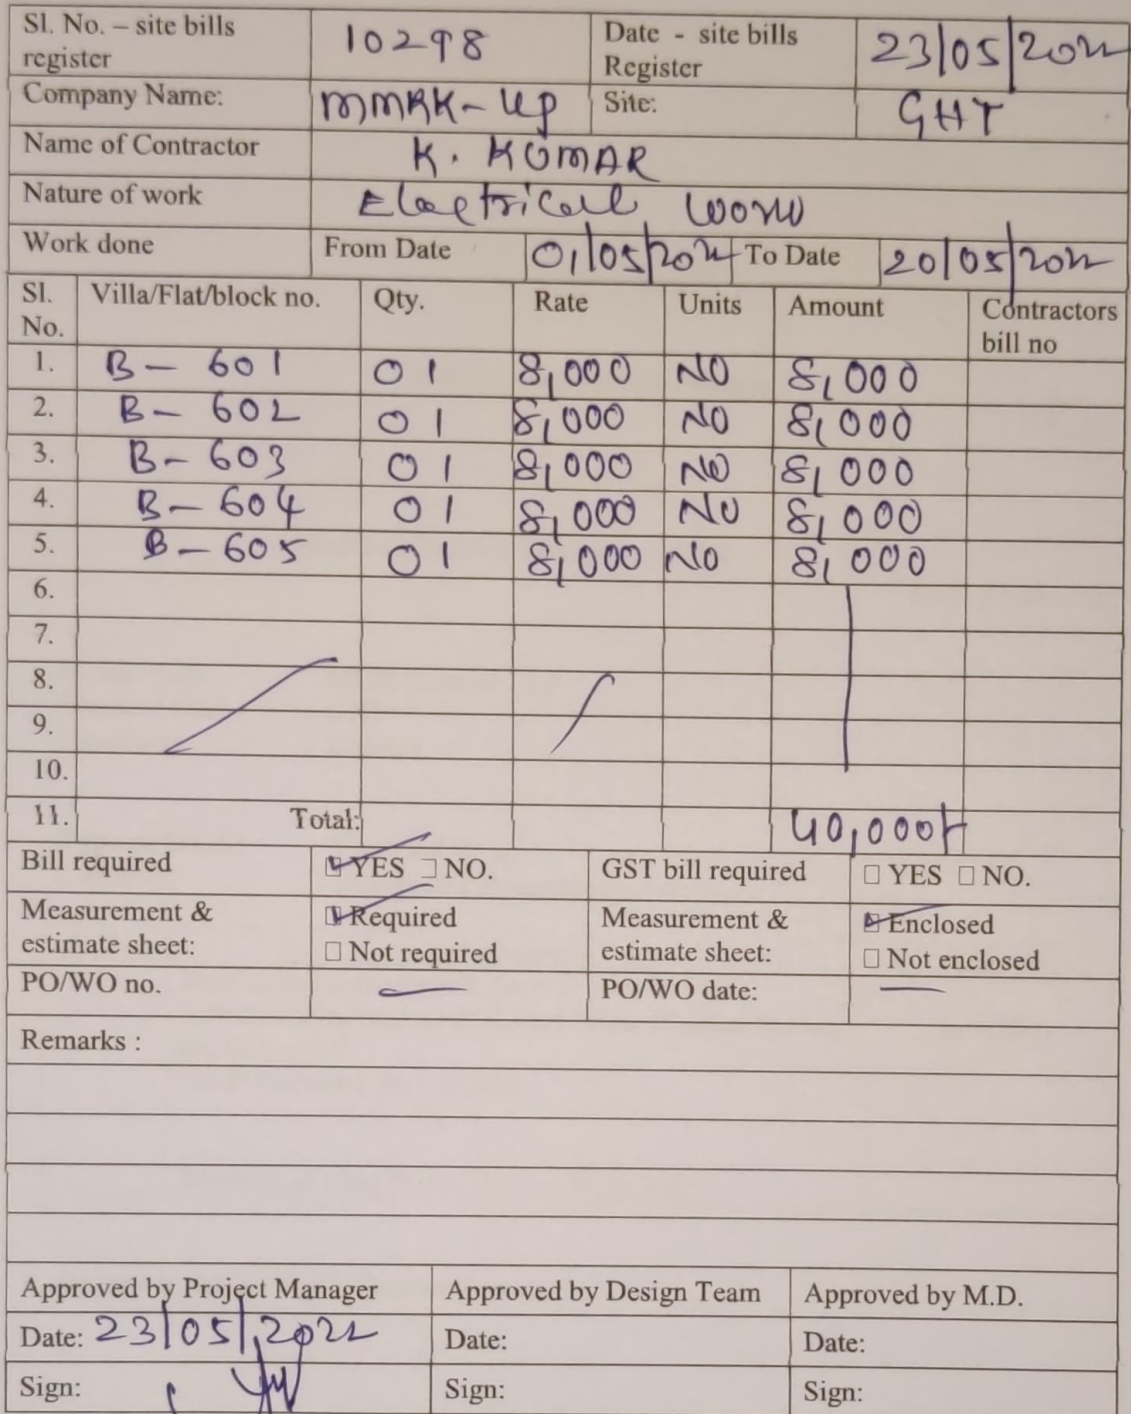 Sl. No. – site bills register 10298 Date - site bills Register 23/05/2022
Company Name: MMRK-UP Site: GHT
Name of Contractor K. KUMAR
Nature of work Electrical work
Work done From Date 01/05/2022 To Date 20/05/2022
Sl. No. Villa/Flat/block no. Qty. Rate Units Amount Contractors bill no
1. B – 601 01 8,000 NO 8,000
2. B – 602 01 8,000 NO 8,000
3. B – 603 01 8,000 NO 8,000
4. B – 604 01 8,000 NO 8,000
5. B – 605 01 8,000 NO 8,000
6.
7.
8.
9.
10.
11. Total: 40,000/-
Bill required ☑ YES ☐ NO. GST bill required ☐ YES ☐ NO.
Measurement & estimate sheet: ☑ Required ☐ Not required Measurement & estimate sheet: ☑ Enclosed ☐ Not enclosed
PO/WO no. — PO/WO date: —
Remarks :
Approved by Project Manager Approved by Design Team Approved by M.D.
Date: 23/05/2022 Date: Date:
Sign: Sign: Sign: